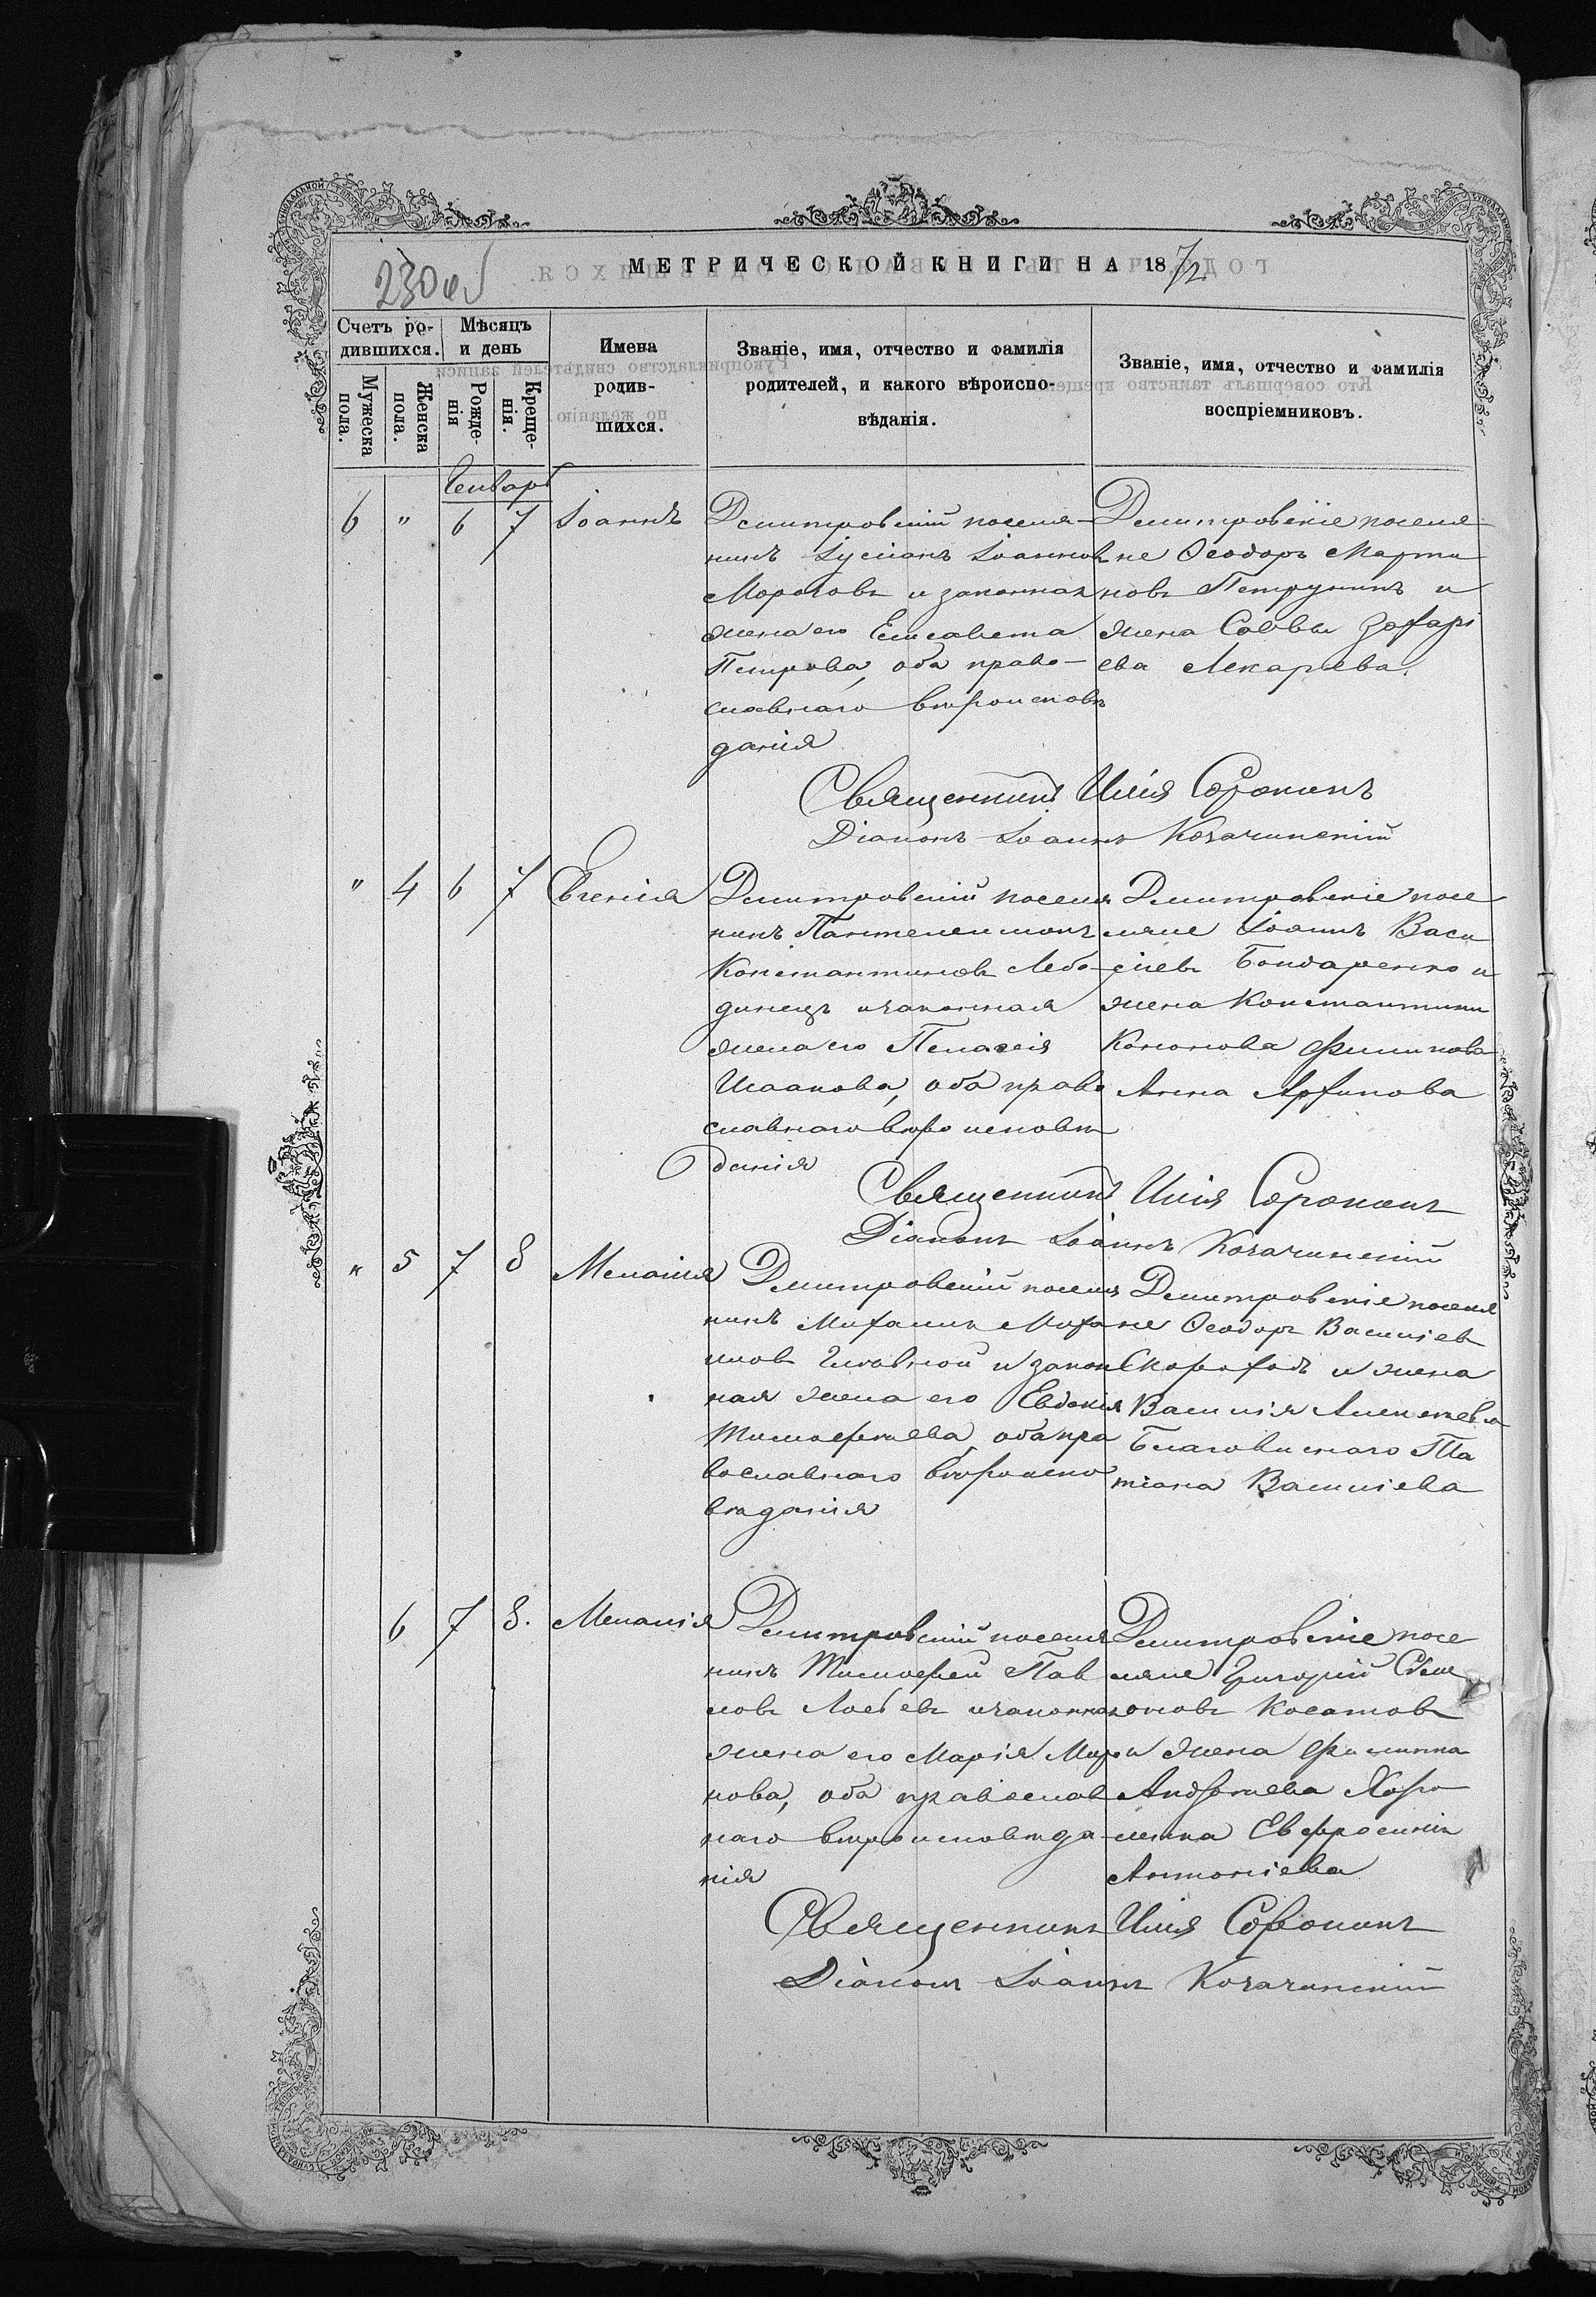 МЕТРИЧЕСКОЙ КНИГИ НА 1872
230 об
Счетъ ро-
дившихся.
Мѣсяцъ
и день
Мужеска
пола.
Женска
пола.
Рожде-
нія
Креще-
нія.
Имена
родив-
шихся.
Званіе, имя, отчество и фамилія
родителей, и какого вѣроиспо-
вѣданія.
Званіе, имя, отчество и фамилія
воспріемниковъ.
Генварь
6 " 6 7 Іоаннъ
Дмитровскій поселя-
нинъ Іуліанъ Іоаннов
Морозовъ и законная
жена его Елисавета
Петрова, оба право-
славнаго вѣроисповѣ
данія
Дмитровскіе поселя
не Ѳеодоръ Марти
новъ Петрунинъ и
жена Саввы Захарі
ева Лекарева.
Священникъ Илія Сорокинъ
Діаконъ Іоаннъ Козачинскій
" 4 6 7 Евгенія
Дмитровскій поселя
нинъ Пантелеимонъ
Константиновъ Лебе-
динецъ и законная
жена его Пелагія
Исаакова, оба право
славнаго вѣроисповѣ
данія
Дмитровскіе посе
ляне Іоаннъ Васи
ліевъ Бондаренко и
жена Константина
Кононова Филипова
Анна Архипова
Священникъ Илія Сорокинъ
Діаконъ Іоаннъ Козачинскій
" 5 7 8 Меланія
Дмитровскій поселя
нинъ Михаилъ Миха
иловъ и закон
ная жена его Евдокія
Тимоѳеева, оба пра
вославнаго вѣроиспо
вѣданія
Дмитровскіе поселя
не Ѳеодоръ Василіев
Скороходъ и жена
Василія Алексѣева
Благовиснаго Та
тіана Василіева
6 7 8. Меланія
Дмитровскій поселя
нинъ Тимоѳей Пав
ловъ и законная
жена его Марія Миро
нова, оба православ
наго вѣроисповѣда
нія
Дмитровскіе посе
ляне Григорій Симе
оновъ Косатовъ
и жена Филиппа
Андреева Хоро
Евфросинія
Антоніева
Священникъ Илія Сорокинъ
Діаконъ Іоаннъ Козачинскій